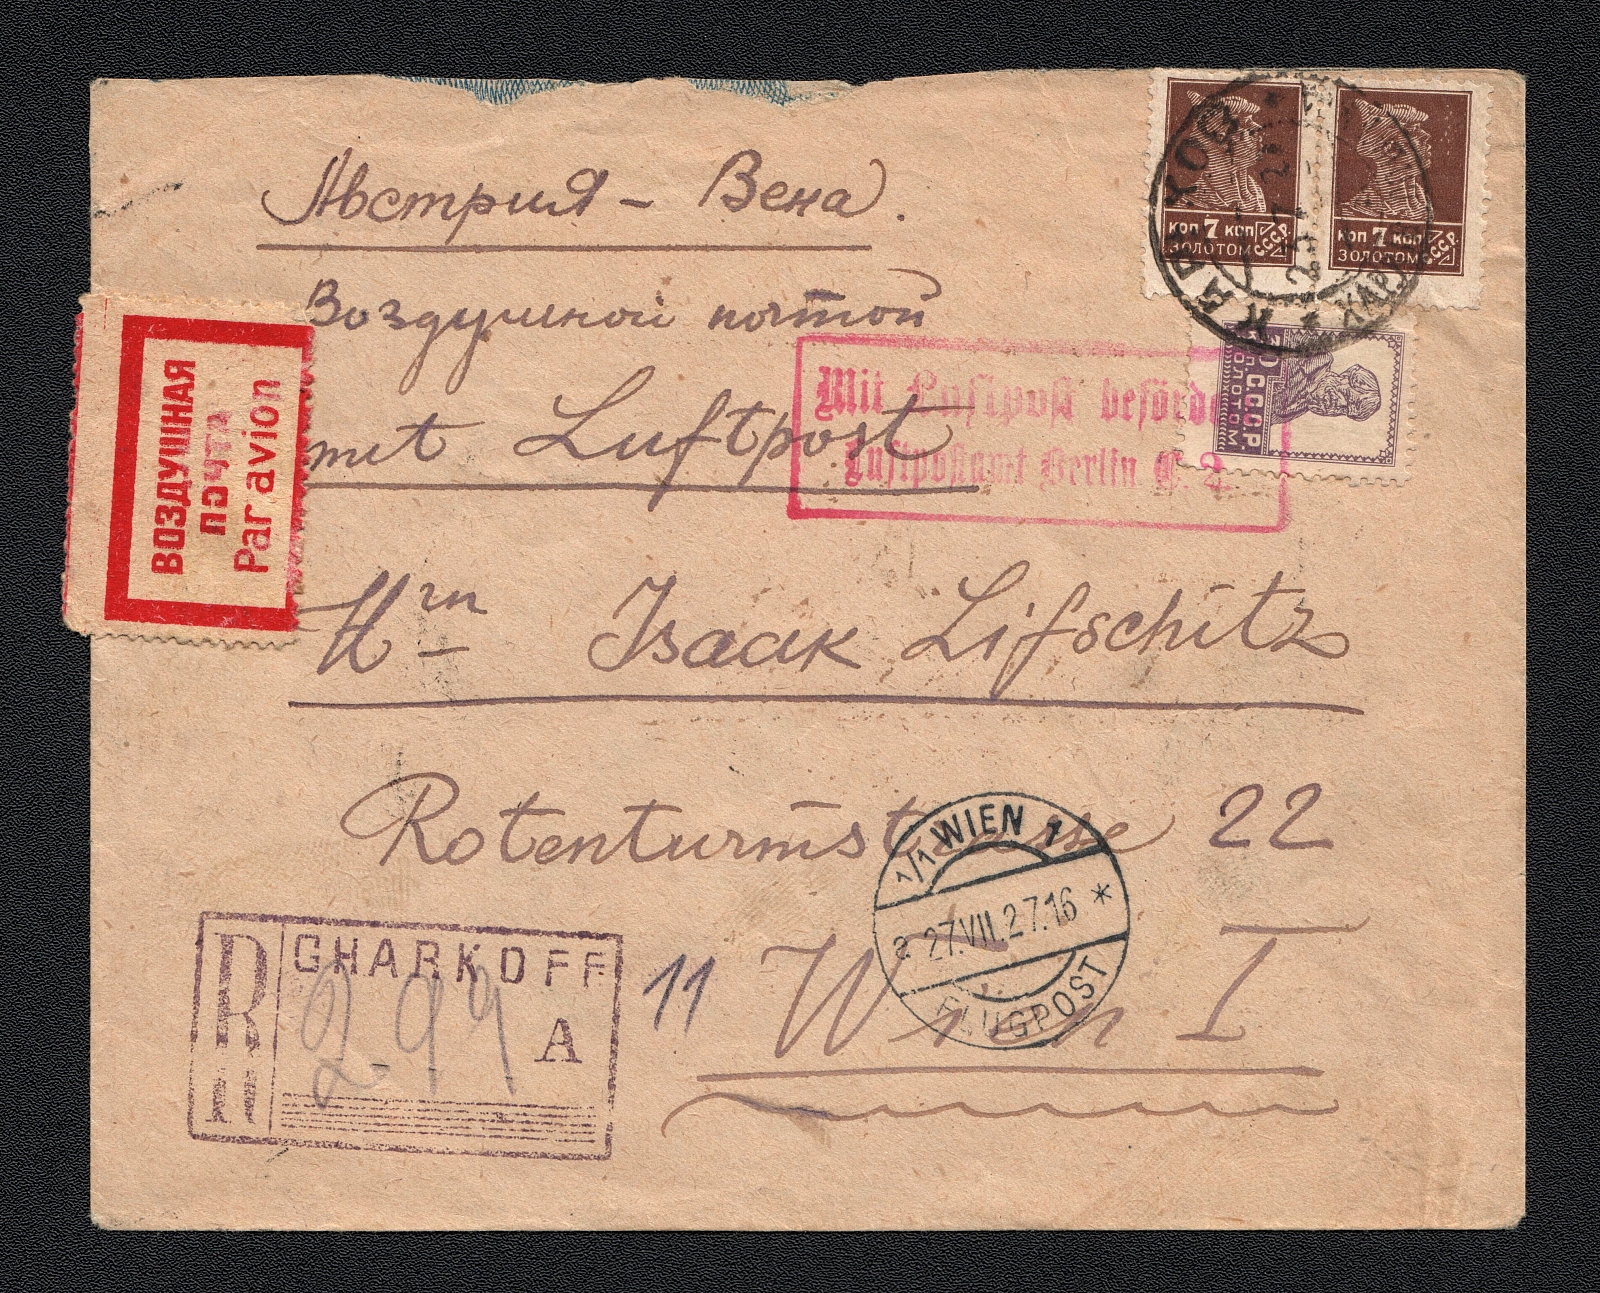 Австрия – Вена.
Воздушной почтой
mit Luftpost
Hrn Isaak Lifschitz
Rotenturmstrasse 22
11 Wien I
ВОЗДУШНАЯ
ПОЧТА
Par avion
КОП 7 КОП
ЗОЛОТОМ
СССР
КОП 7 КОП
ЗОЛОТОМ
СССР
С.С.С.Р.
ЗОЛОТОМ
ХАРЬКОВ
Mit Luftpost beförde
Luftpostamt Berlin C. 2
1/1 WIEN 1
a 27.VII.27.16 *
FLUGPOST
R
CHARKOFF
299
A